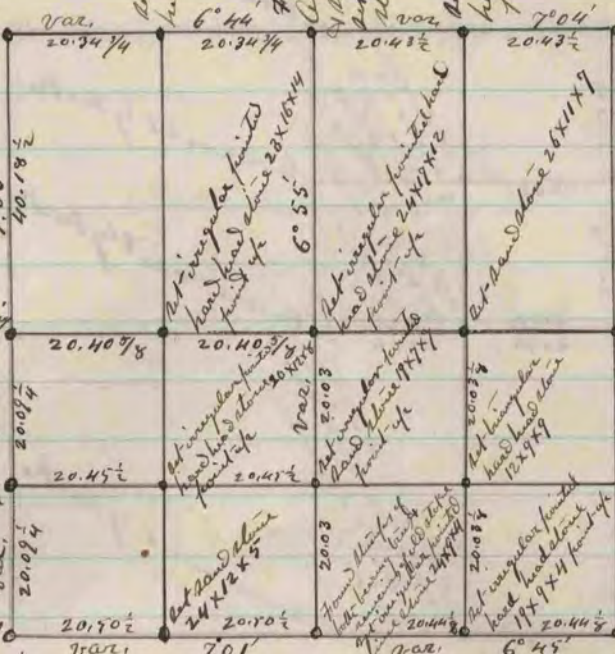 var. 6° 44' var. 7° 04'
20.34 3/4 20.34 3/4 20.43 1/2 20.43 1/2
40.18 1/2
Set irregular pointed
hard head stone 23x16x14
point up
6° 55'
Set irregular pointed hard
head stone 24x17x12
point up
Set sand stone 26x11x7
20.40 5/8 20.40 5/8
20.09 1/4
Set irregular pointed
hard head stone 20x12x8
point up
var.
20.03
Set irregular pointed
sand stone 19x7x7
point up
20.03 1/8
Set triangular
hard head stone
12x9x9
20.45 1/2 20.45 1/2
20.09 1/4
Set sand stone
24x12x5
20.03
Found stumps of
both bearing trees &
remains of old stake
Set irregular pointed
stone 24x9x4
20.03 1/8
Set irregular pointed
hard head stone
19x9x4 point up
20.50 1/2 20.50 1/2 20.44 1/8 20.44 1/8
var. 7° 01' var. 6° 45'